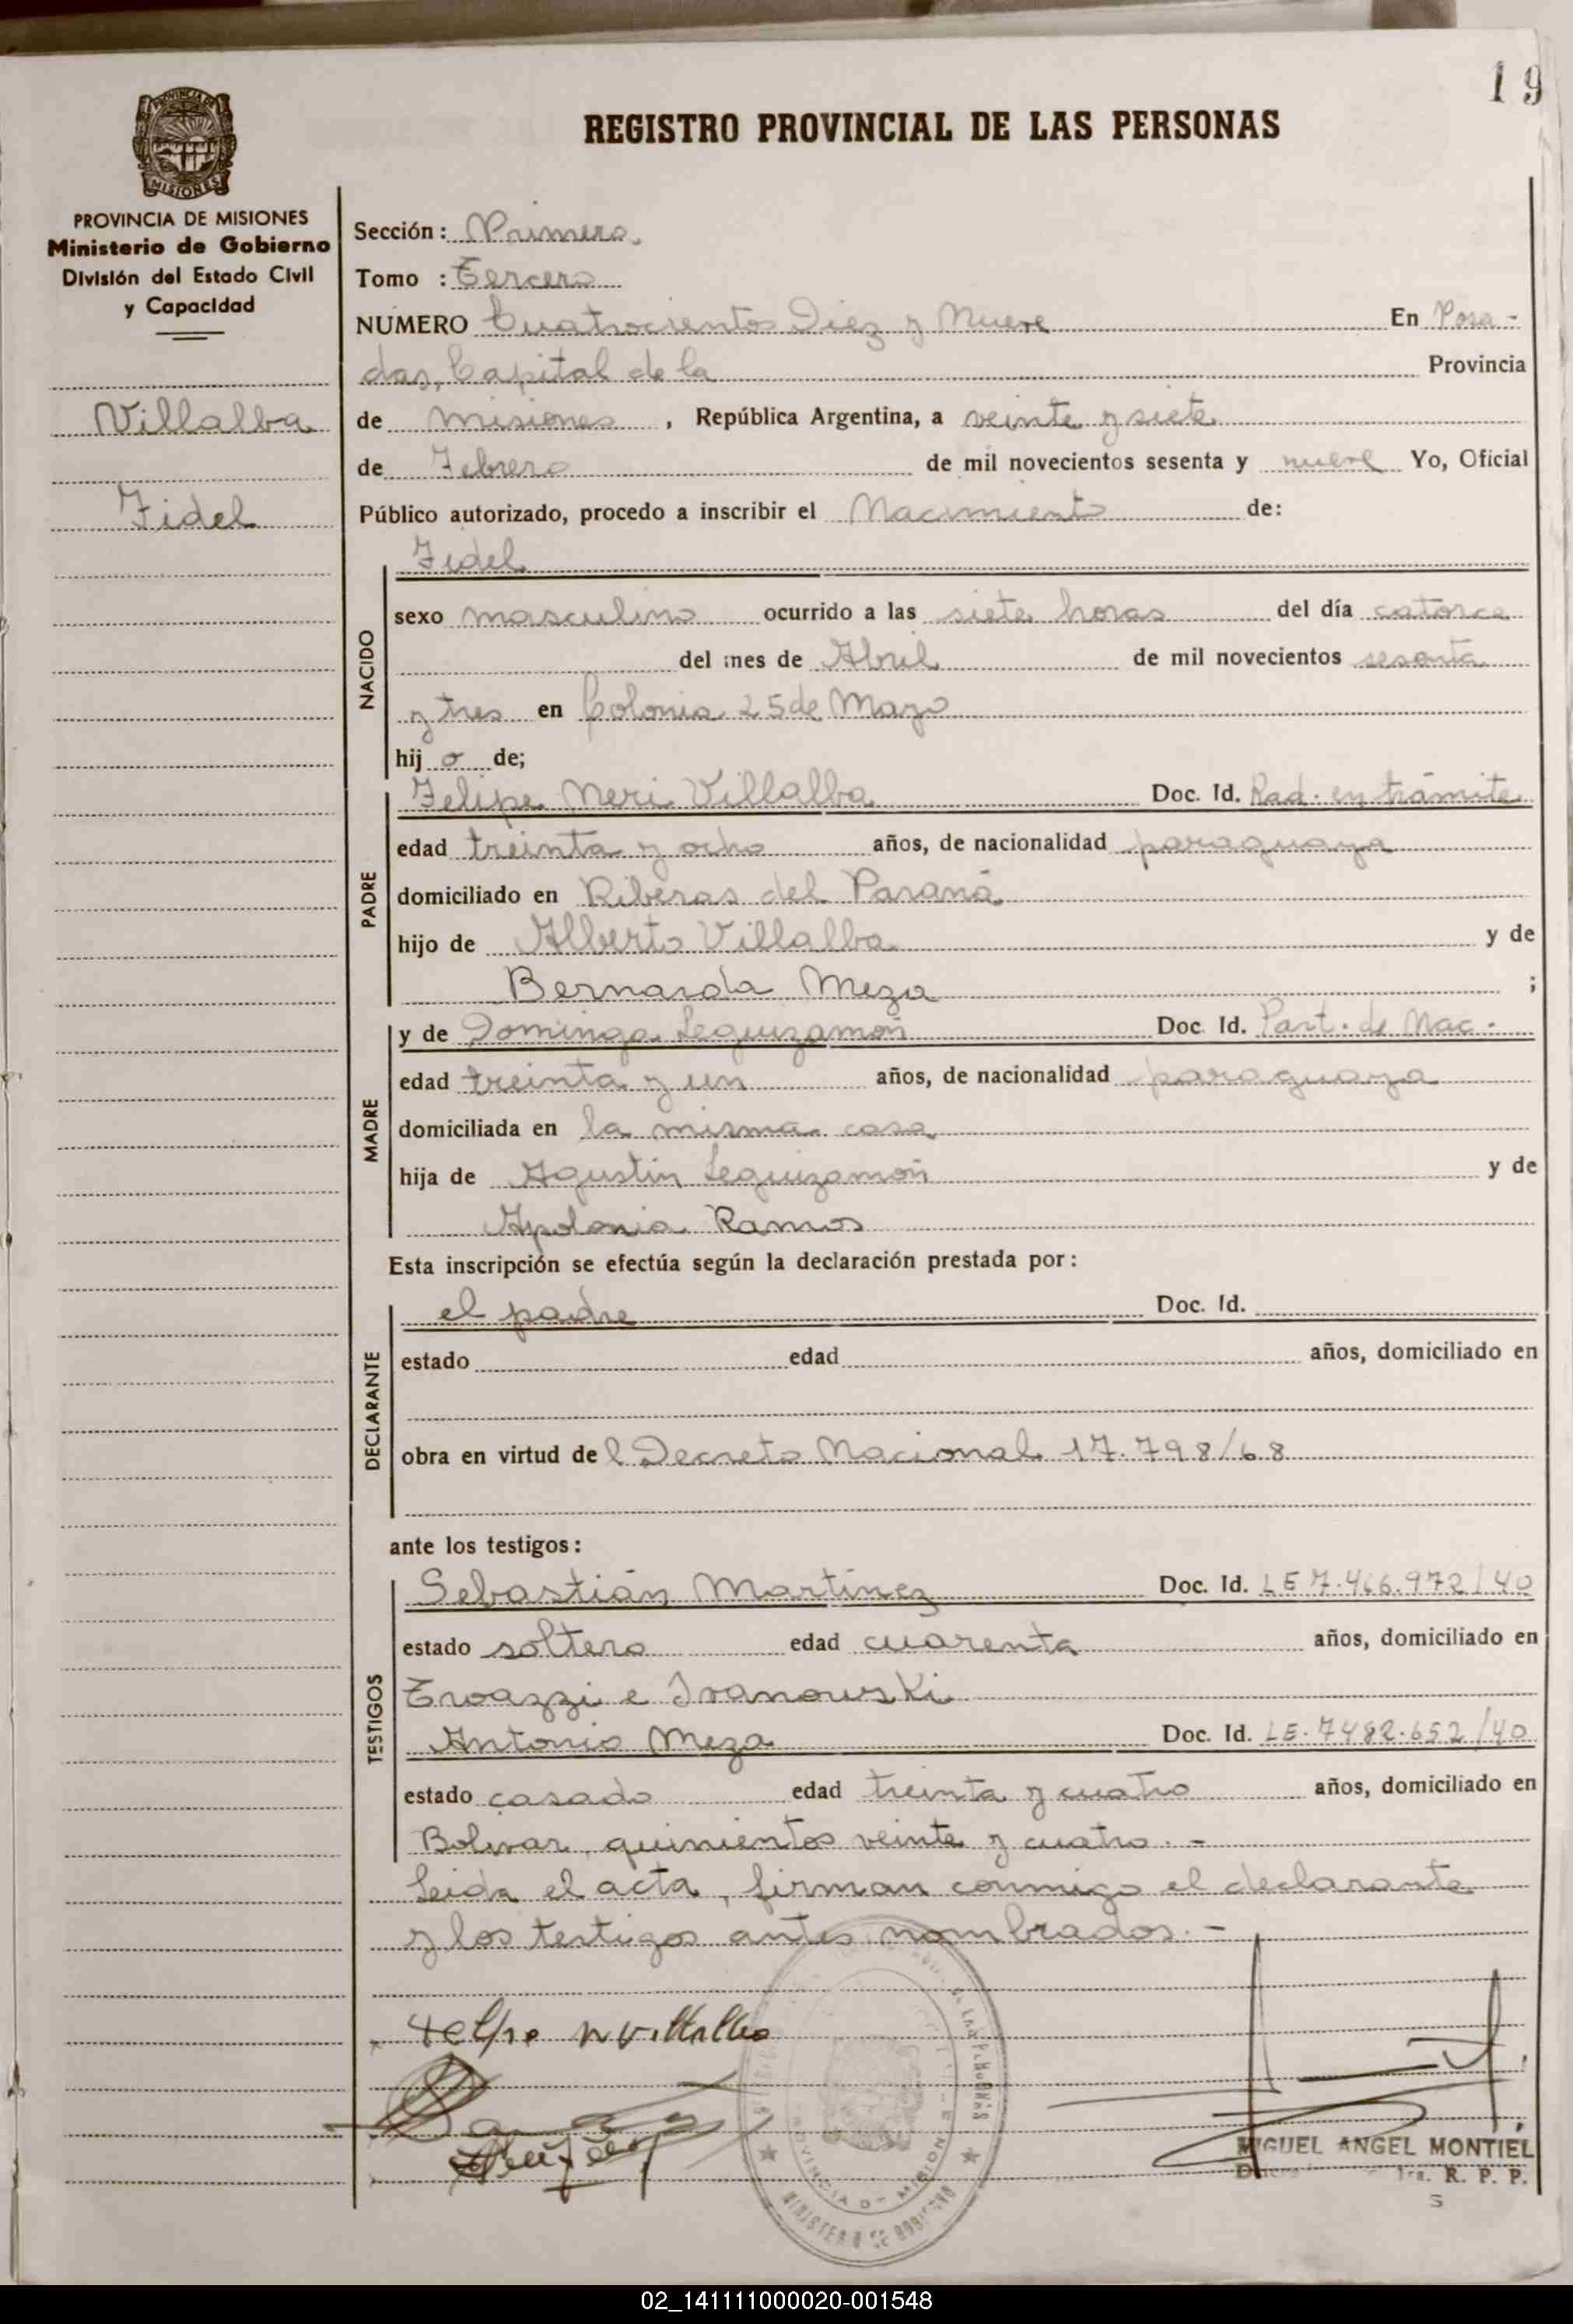 19
REGISTRO PROVINCIAL DE LAS PERSONAS
PROVINCIA DE MISIONES
MISIONES
PROVINCIA DE MISIONES
Ministerio de Gobierno
División del Estado Civil
y Capacidad
Villalba
Fidel
Sección: Primera
Tomo : Tercero
NUMERO Cuatrocientos Diez y Nueve En Posa-
das, Capital de la Provincia
de Misiones, República Argentina, a veinte y siete
de Febrero de mil novecientos sesenta y nueve Yo, Oficial
Público autorizado, procedo a inscribir el Nacimiento de:
NACIDO
Fidel
sexo masculino ocurrido a las siete horas del día catorce
del mes de Abril de mil novecientos sesenta
y tres en Colonia 25 de Mayo
hij o de;
PADRE
Felipe Neri Villalba Doc. Id. Rad. en trámite
edad treinta y ocho años, de nacionalidad paraguaya
domiciliado en Riberas del Paraná
hijo de Alberto Villalba y de
Bernarda Meza ;
MADRE
y de Dominga Leguizamón Doc Id. Part. de Nac.
edad treinta y un años, de nacionalidad paraguaya
domiciliada en la misma casa
hija de Agustín Leguizamón y de
Apolonia Ramos
Esta inscripción se efectúa según la declaración prestada por:
DECLARANTE
el padre Doc. Id.
estado edad años, domiciliado en
obra en virtud de l Decreto Nacional 17.798/68
ante los testigos:
TESTIGOS
Sebastián Martínez Doc. Id. LE 7.466.972/40
estado soltero edad cuarenta años, domiciliado en
e Ivanowski
Antonio Meza Doc. Id. LE. 7482.652/40
estado casado edad treinta y cuatro años, domiciliado en
Bolivar, quinientos veinte y cuatro.-
Leida el acta, firman conmigo el declarante
y los testigos antes nombrados.-
Felipe N Villalba
MINISTERIO DE GOBIERNO
PROVINCIA DE MISIONES
MIGUEL ANGEL MONTIEL
R. P. P.
02_141111000020-001548